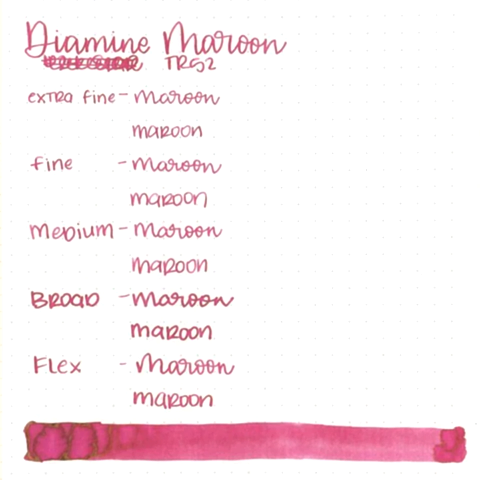 Diamine Maroon
TR52
extra fine - Maroon
maroon
fine - Maroon
maroon
Medium - Maroon
maroon
Broad - Maroon
maroon
Flex - Maroon
maroon